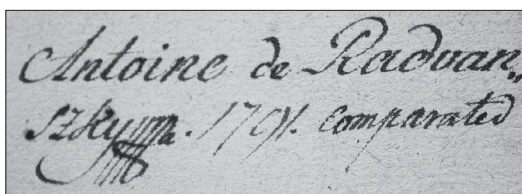 Antoine de Radvan„
szky mpa. 1791. comparated